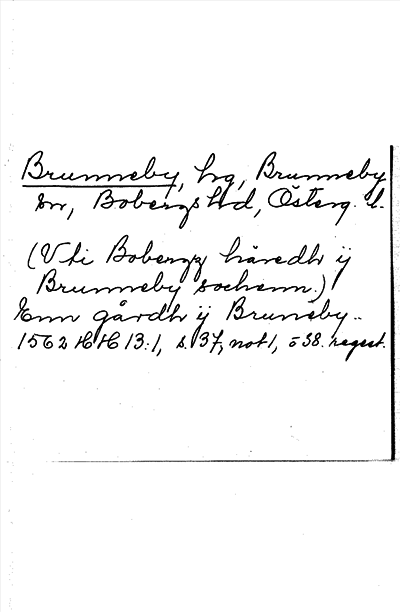 Brunneby, hg, Brunneby
sn, Bobergs hd, Österg. l.
(Vti Bobergz häredh ij
Brunneby sochenn.)
Enn gårdh ij Bruneby..
1562 HH 13:1, s. 37, not 1, o 38. regest.